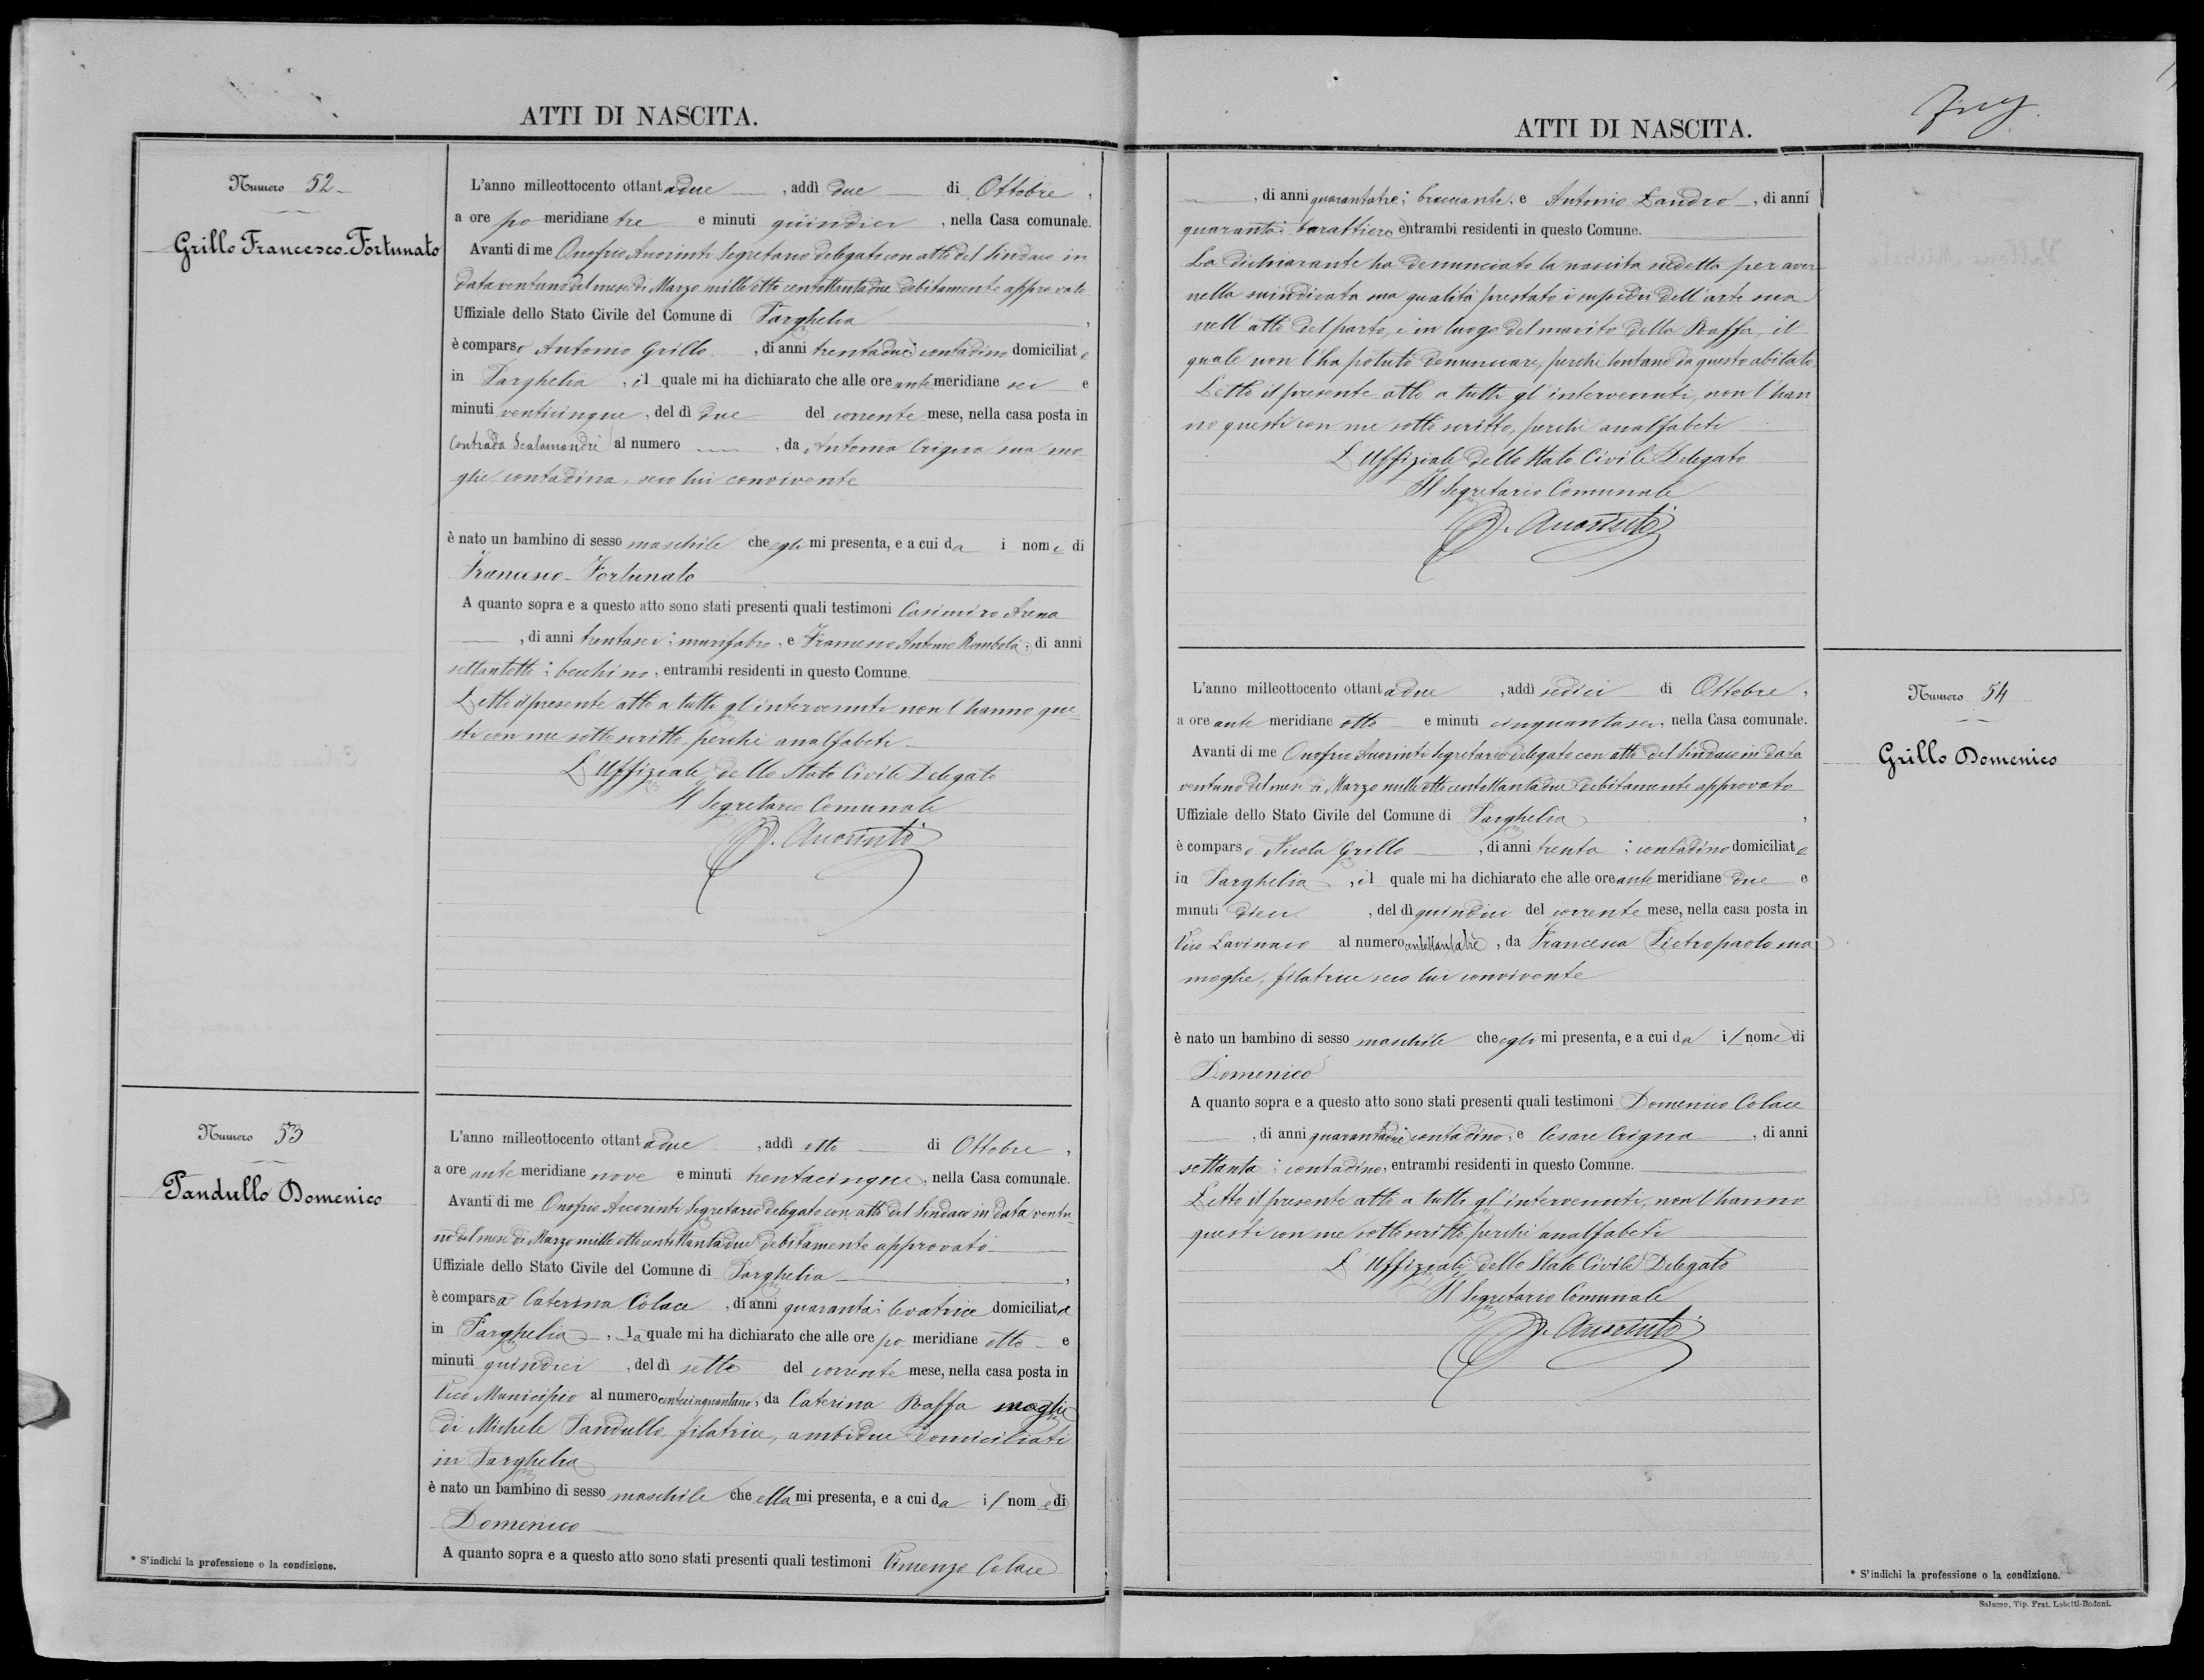 ATTI DI NASCITA.
Numero 52
Grillo Francesco-Fortunato
L'anno milleottocento ottantadue, addì due di Ottobre,
a ore pomeridiane tre e minuti quindici, nella Casa comunale.
Avanti di me Onofrio Accorinti Segretario delegato con atto del Sindaco in
data ventuno del mese di Marzo mille otto centottantadue debitamente approvato
Uffiziale dello Stato Civile del Comune di Parghelia,
è comparso Antonio Grillo, di anni trentadue; contadino domiciliato
in Parghelia, il quale mi ha dichiarato che alle ore antemeridiane sei e
minuti venticinque, del dì due del corrente mese, nella casa posta in
Contrada Scalamandrè al numero , da Antonia Crigna sua mo
glie contadina, seco lui convivente
è nato un bambino di sesso maschile che egli mi presenta, e a cui da i nomi di
Francesco-Fortunato
A quanto sopra e a questo atto sono stati presenti quali testimoni Casimiro Arena
, di anni trentasei; murifabro, e Francesco Antonio Rombolà, di anni
settantotto; becchino, entrambi residenti in questo Comune.
Letto il presente atto a tutti gl'intervenuti non l'hanno que
sti con me sottoscritto, perchè analfabeti
L'Uffiziale dello Stato Civile Delegato
Il Segretario Comunale
O. Accorinti
Numero 53
Pandullo Domenico
L'anno milleottocento ottantadue, addì otto di Ottobre,
a ore antemeridiane nove e minuti trentacinque, nella Casa comunale.
Avanti di me Onofrio Accorinti Segretario delegato con atto del Sindaco in data ventu
no del mese di Marzo mille ottocentottantadue debitamente approvato
Uffiziale dello Stato Civile del Comune di Parghelia,
è comparsa Caterina Colace, di anni quaranta; levatrice domiciliata
in Parghelia, la quale mi ha dichiarato che alle ore pomeridiane otto e
minuti quindici, del dì sette del corrente mese, nella casa posta in
Vico Municipio al numero centocinquantuno, da Caterina Raffa moglie
di Michele Pandullo, filatrice, ambidue domiciliati
in Parghelia
è nato un bambino di sesso maschile che ella mi presenta, e a cui da il nome di
Domenico
A quanto sopra e a questo atto sono stati presenti quali testimoni Vincenzo Colace
* S'indichi la professione o la condizione.
ATTI DI NASCITA.
, di anni quarantatre; bracciante, e Antonio Landro, di anni
quaranta; barattiere entrambi residenti in questo Comune.
La dichiarante ha denunciato la nascita sudetta per aver
nella suindicata sua qualità prestato i sussidii dell'arte sua
nell'atto del parto, e in luogo del marito della Raffa, il
quale non l'ha potuto denunciare, perchè lontano da questo abitato.
Letto il presente atto a tutti gl'intervenuti, non l'han
no questi con me sottoscritto, perchè analfabeti
L'Uffiziale dello Stato Civile Delegato
Il Segretario Comunale
O. Accorinti
Numero 54
Grillo Domenico
L'anno milleottocento ottantadue, addì sedici di Ottobre,
a ore antemeridiane otto e minuti cinquantasei, nella Casa comunale.
Avanti di me Onofrio Accorinti Segretario delegato con atto del Sindaco in data
ventuno del mese di Marzo mille otto centottantadue debitamente approvato
Uffiziale dello Stato Civile del Comune di Parghelia,
è comparso Nicola Grillo, di anni trenta; contadino domiciliato
in Parghelia, il quale mi ha dichiarato che alle ore antemeridiane due e
minuti dieci, del dì quindici del corrente mese, nella casa posta in
Vico Lavinaio al numero centottantatrè, da Francesca Pietropaolo sua
moglie, filatrice seco lui convivente
è nato un bambino di sesso maschile che egli mi presenta, e a cui da il nome di
Domenico
A quanto sopra e a questo atto sono stati presenti quali testimoni Domenico Colace
, di anni quarantadue; contadino, e Cesare Crigna, di anni
settanta; contadino, entrambi residenti in questo Comune.
Letto il presente atto a tutti gl'intervenuti, non l'hanno
questi con me sottoscritto, perchè analfabeti
L'Uffiziale dello Stato Civile Delegato
Il Segretario Comunale
O. Accorinti
* S'indichi la professione o la condizione.
Saluzzo, Tip. Frat. Lobetti-Bodoni.